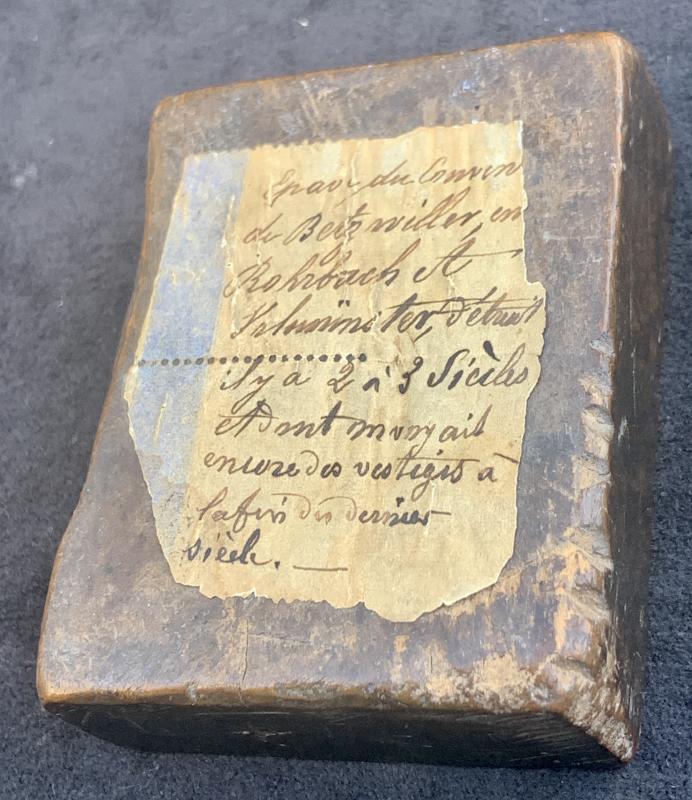 Epave du Couven
de Betzwiller, en
Rohrbach et
Volmünster, détruit
il y a 2 à 3 Siècles
et dont
encore des vestiges à
la fin du dernier
siècle. —